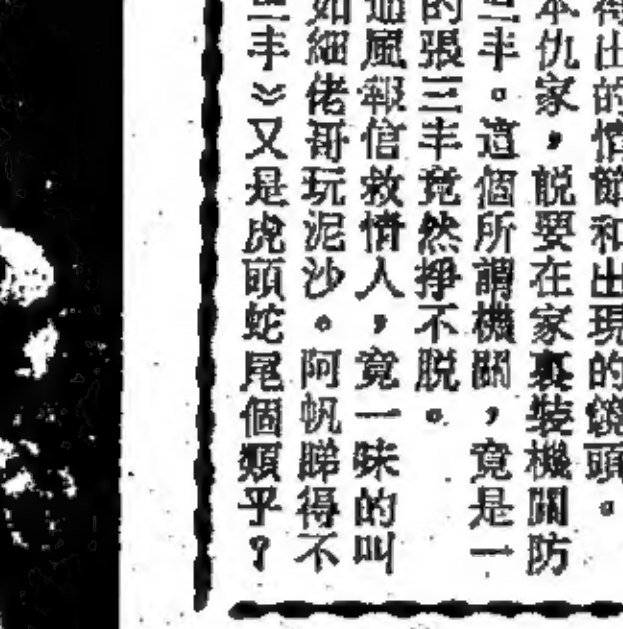 得出的情節和出現的鏡頭。
本仇家，説要在家裏裝機關防
三丰。這個所謂機關，竟是一
的張三丰竟然掙不脱。
通風報信救情人，竟一味的叫
如細佬哥玩泥沙。阿帆睇得不
三丰》又是虎頭蛇尾個類乎？